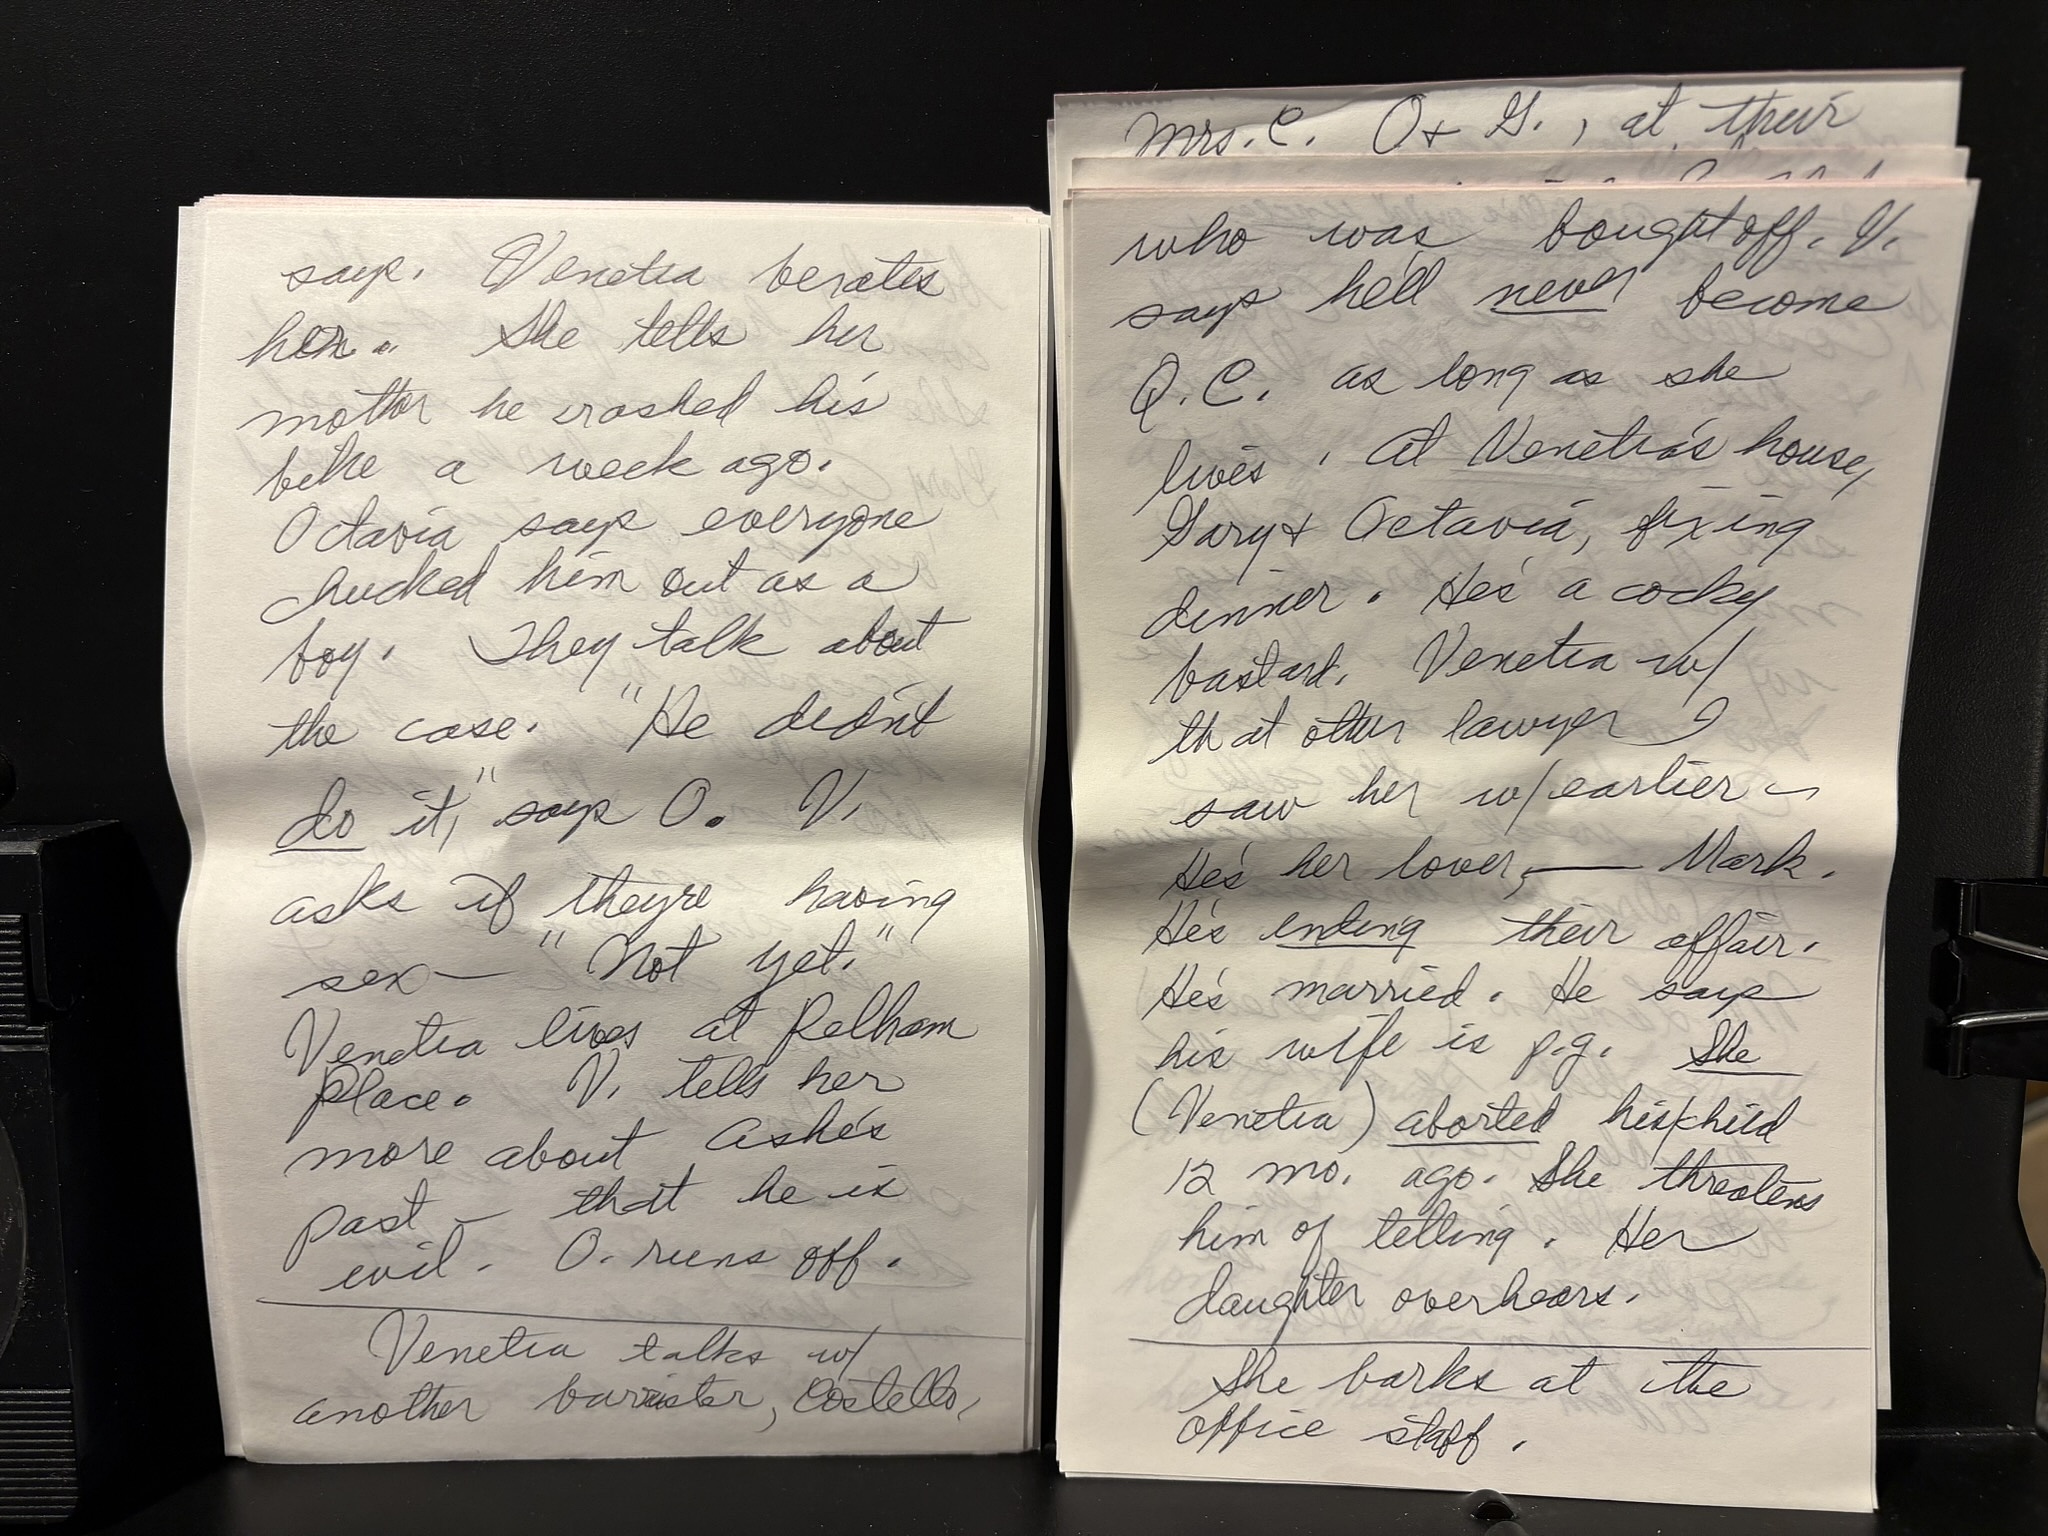 says. Venetia berates
her. She tells her
mother he crashed his
bike a week ago.
Octavia says everyone
chucked him out as a
boy. They talk about
the case. "He didn't
do it," says O. V.
asks if they're having
sex — "Not yet."
Venetia lives at Pelham
Place. V. tells her
more about Ashe's
past — that he is
evil. O. runs off.
Venetia talks w/
another barrister, Costello,
Mrs. C. O + G., at their
who was bought off. V.
says he'll never become
Q.C. as long as she
lives. At Venetia's house,
Gary + Octavia, fixing
dinner. He's a cocky
bastard. Venetia w/
that other lawyer I
saw her w/ earlier –
He's her lover, — Mark.
He's ending their affair.
He's married. He says
his wife is p.g. She
(Venetia) aborted his child
12 mo. ago. She threatens
him of telling. Her
daughter overhears.
She barks at the
office staff.